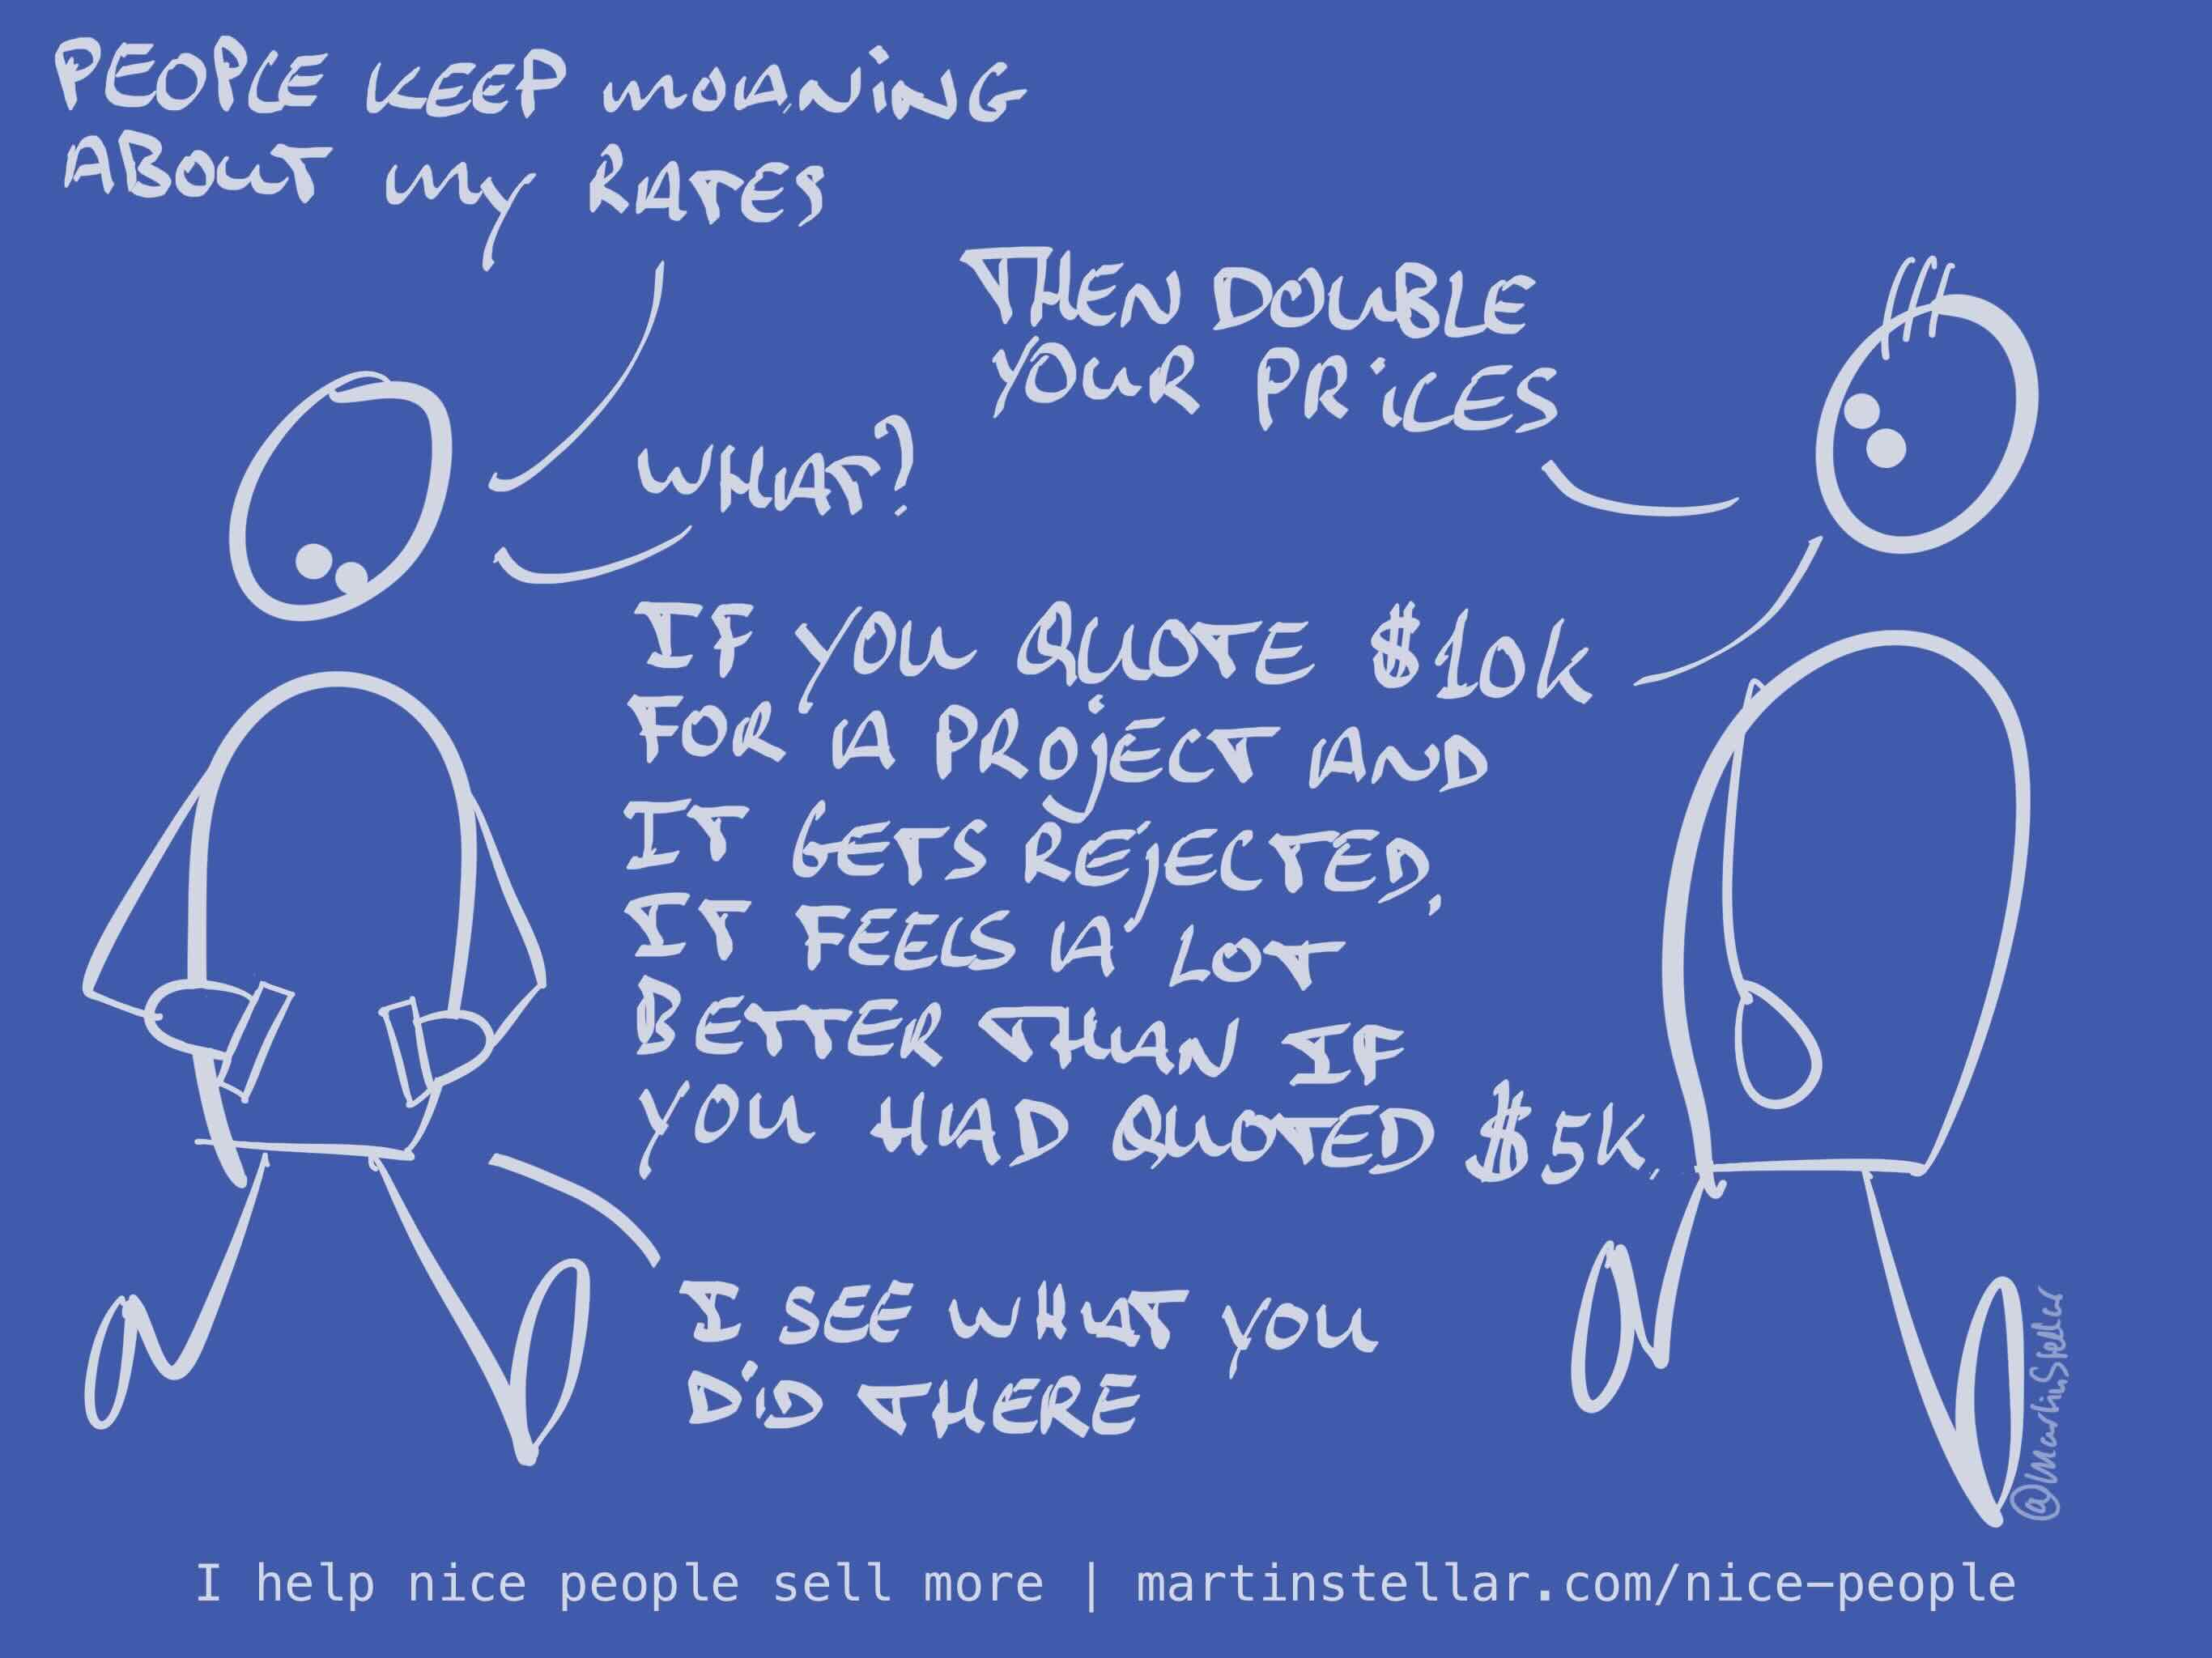 PEOPLE KEEP MOANING
ABOUT MY RATES
THEN DOUBLE
YOUR PRICES
WHAT?
IF YOU QUOTE $10K
FOR A PROJECT AND
IT GETS REJECTED,
IT FEELS A LOT
BETTER THAN IF
YOU HAD QUOTED $5K.
I SEE WHAT YOU
DID THERE
@MartinStellar
I help nice people sell more | martinstellar.com/nice-people